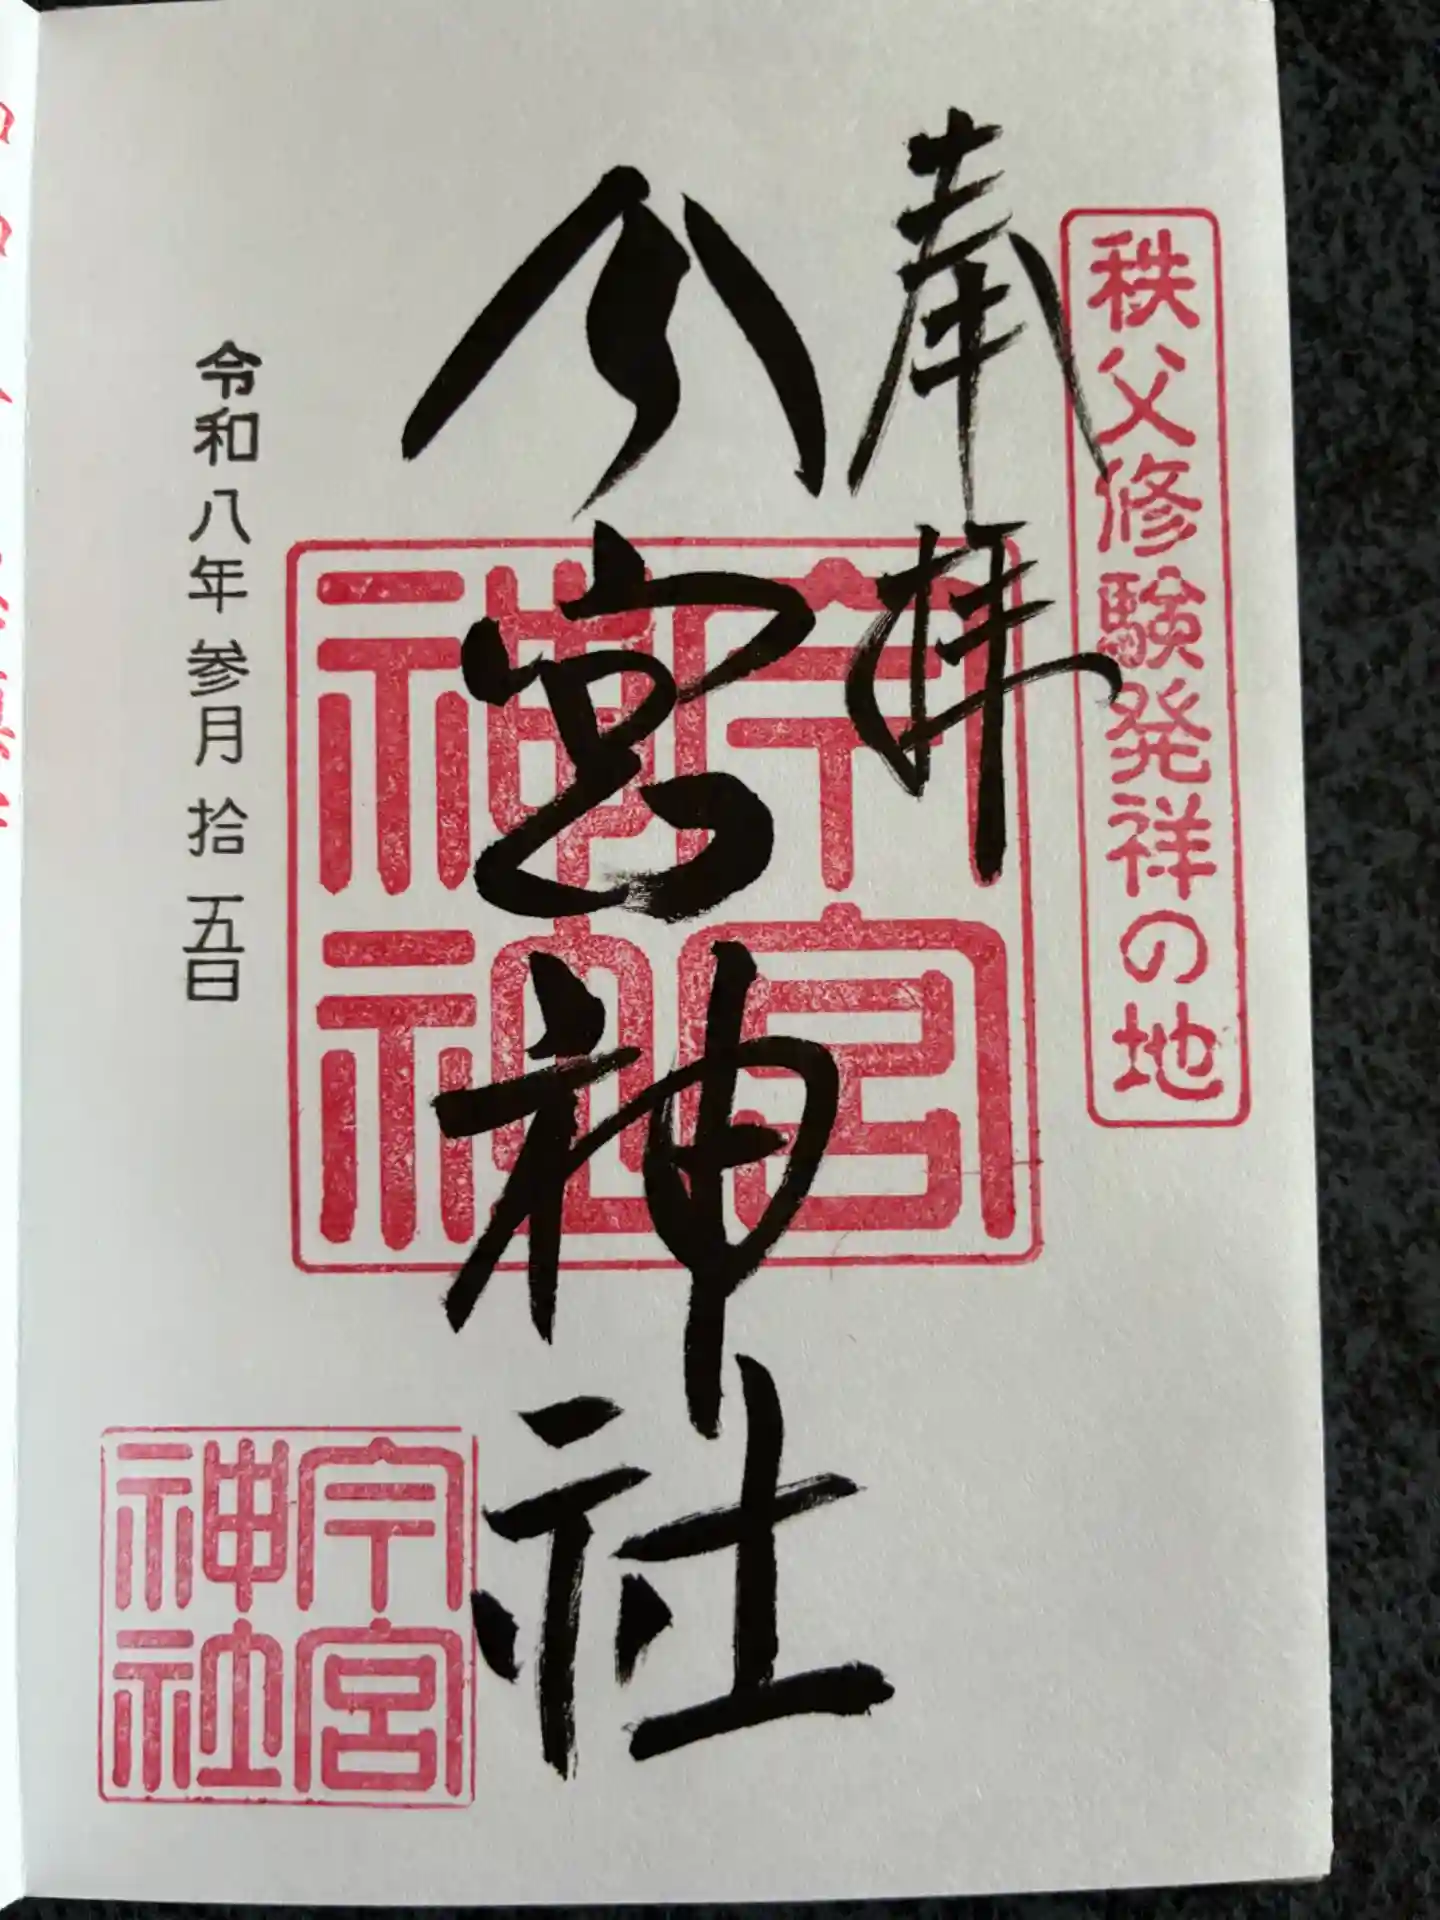 秩父修験発祥の地
奉拝
今宮神社
今宮
神社
令和八年参月拾五日
今宮
神社